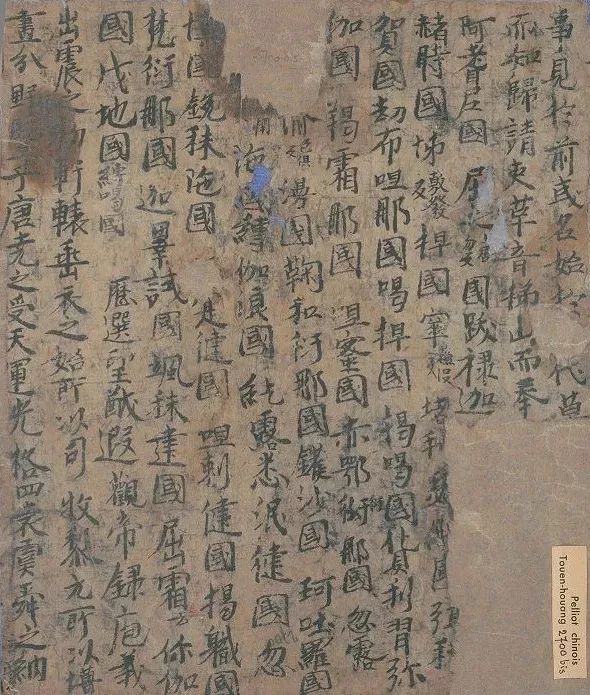 事見於前或名始於 代莫
而知歸請吏革音梯山而奉
阿耆尼國 屈支 國跋祿迦
赭時國 敷發 捍國 窣 堵利
賀國劫布呾那國喝捍國 揭喝國貨利習弥
伽國 羯霜那國 呾蜜國 赤鄂衍那國忽露
愉 漫國鞠和衍那國鑊沙國 珂咄羅國
國縛伽浪國 紇露悉泯健國忽
國銳秣陁國 寔健國 呾剌健國揭職國
梵衍那國迦畢試國颯秣建國屈霜你伽
國戊地國縛喝國 歷選皇猷遐觀帝錄庖羲
出震之初軒轅垂衣之始所以司牧黎元所以壃
畫分野 乎唐堯之受天運光格四表虞舜之納
Pelliot chinois
Touen-houang 2700 bis